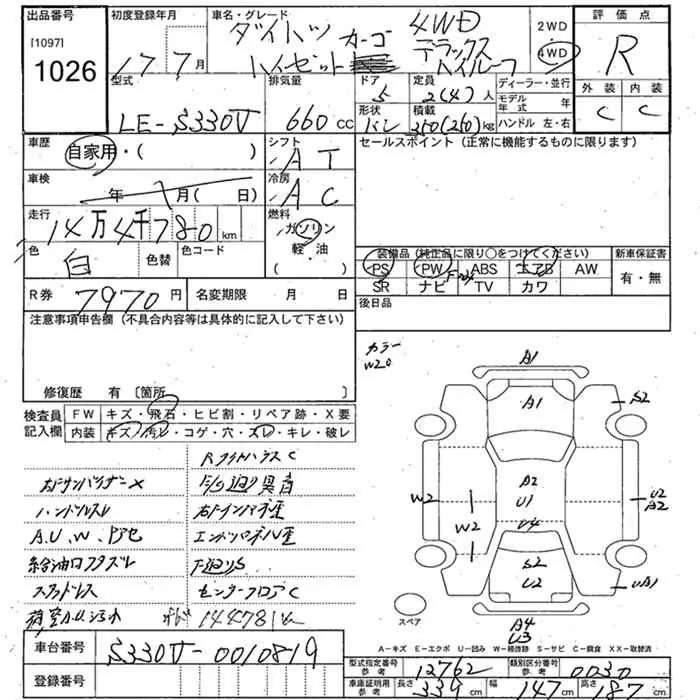 出品番号
[1097]
1026
初度登録年月
17年7月
車名・グレード
ダイハツ ハイゼットカーゴ
4WD デラックス ハイルーフ
2WD
4WD
評価点
R
外装 内装
C C
型式
LE-S330V
排気量
660cc
ドア
5
定員
2(4)人
形状
バン
積載
350(250)kg
ディーラー・並行
モデル年式 年
ハンドル 左・右
車歴
自家用・( )
車検
年 月( 日)
走行
14万4千780km
色
白
色替
色コード
シフト
AT
冷房
AC
燃料
ガソリン
軽・油
セールスポイント(正常に機能するものに限ります)
装備品(純正品に限り○をつけてください)
PS PW ABS エアB AW
SR ナビ TV カワ
新車保証書
有・無
後日品
R券 7970円
名変期限 月 日
注意事項申告欄(不具合内容等は具体的に記入して下さい)
修復歴 有〔箇所
検査員記入欄
FW キズ・飛石・ヒビ割・リペア跡・X要
内装 キズ・汚レ・コゲ・穴・スレ・キレ・破レ
カラー
W20
RフロアハウスC
右サンバイザー×
ハンドルスレ
A.U.W.P
給油口フタズレ
スタッドレス
F廻り異音
右インパネ歪
エンドパネル歪
下廻りS
センターフロアC
144781km
A1
A1
A2
U1
U4
S2
U2
A4
U3
W2
W2
S2
U2
A2
UA1
スペア
A-キズ E-エクボ U-凹み W-補修跡 S-サビ C-腐食 XX-取替済
車台番号
S330V-0010819
登録番号
型式指定番号
参考
12762
類別区分番号
参考
0030
車庫証明用
参考
長さ 339cm 幅 147cm 高さ 187cm